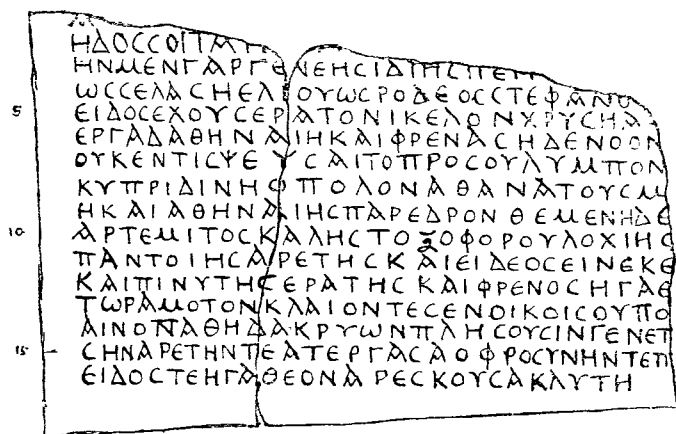 ΗΝΜΕΝΓΑΡΓΕΝΕΗCΙΔΠCΠΕΠ
ΩCCΕΛΑCΗΕΛΙΟΥΩCΡΟΔΕΟCCΤΕΦΑΝΟ
5 ΕΙΔΟCΕΧΟΥCΕΡΑΤΟΝΙΚΕΛΟΝΧΡΥCΗΑ
ΕΡΓΑΔΑΘΗΝΑΙΗΚΑΙΦΡΕΝΑCΗΔΕΝΟΟΝ
ΟΥΚΕΝΤΙCΨΕΥCΑΙΤΟΠΡΟCΟΥΛΥΜΠΟΝ
ΚΥΠΡΙΔΙΝΗΟΠΟΛΟΝΑΘΑΝΑΤΟΥCΜ
ΗΚΑΙΑΘΗΝΑΙΗCΠΑΡΕΔΡΟΝΘΕΜΕΝΗΔΕ
10 ΑΡΤΕΜΙΤΟCΚΑΛΗCΤΟΞΟΦΟΡΟΥΛΟΧΙΗC
ΠΑΝΤΟΙΗCΑΡΕΤΗCΚΑΙΕΙΔΕΟCΕΙΝΕΚΕ
ΚΑΙΠΙΝΥΤΗCΕΡΑΤΗCΚΑΙΦΡΕΝΟCΗΓΑΕ
ΤΩΡΑΜΟΤΟΝΚΛΑΙΟΝΤΕCΕΝΟΙΚΟΙCΟΥΠΟ
ΑΙΝΟΠΑΘΗΔΑΚΡΥΩΝΠΛΗCΟΥCΙΝΓΕΝΕΤ
15 CΗΝΑΡΕΤΗΝΠΕΑΤΕΡΓΑCΑΟΦΡΟCΥΝΗΝΤΕΠ
ΕΙΔΟCΤΕΗΓΑΘΕΟΝΑΡΕCΚΟΥCΑΚΛΥΤΗ